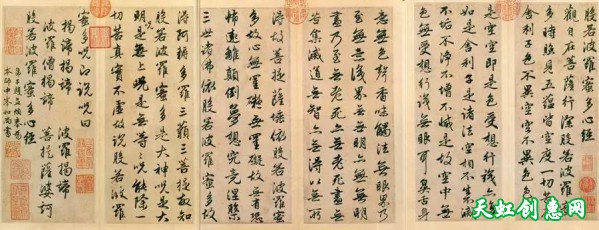 般若波羅蜜多心經
觀自在菩薩行深般若波羅蜜
多時照見五蘊皆空度一切苦厄
舍利子色不異空空不異色色
是空空即是色受想行識亦復
如是舍利子是諸法空相不生不滅
不垢不淨不增不減是故空中無
色無受想行識無眼耳鼻舌身
意無色聲香味觸法無眼界乃
至無意識界無無明亦無無明
盡乃至無老死亦無老死盡無
苦集滅道無智亦無得以無所
得故菩提薩埵依般若波羅蜜
多故心無罣礙罣礙故無有恐
怖遠離顛倒夢想究竟涅槃
三世諸佛依般若波羅蜜多故
得阿耨多羅三藐三菩提故知
般若波羅蜜多是大神咒是大
明咒是無上咒是無等等咒能除一
切苦真實不虛故說般若波羅
蜜多咒即說咒曰
揭諦揭諦 波羅揭諦
波羅僧揭諦 菩提薩婆訶
般若波羅蜜多心經
弟子趙孟頫奉為
本師中峯和尚書
天虹创意网